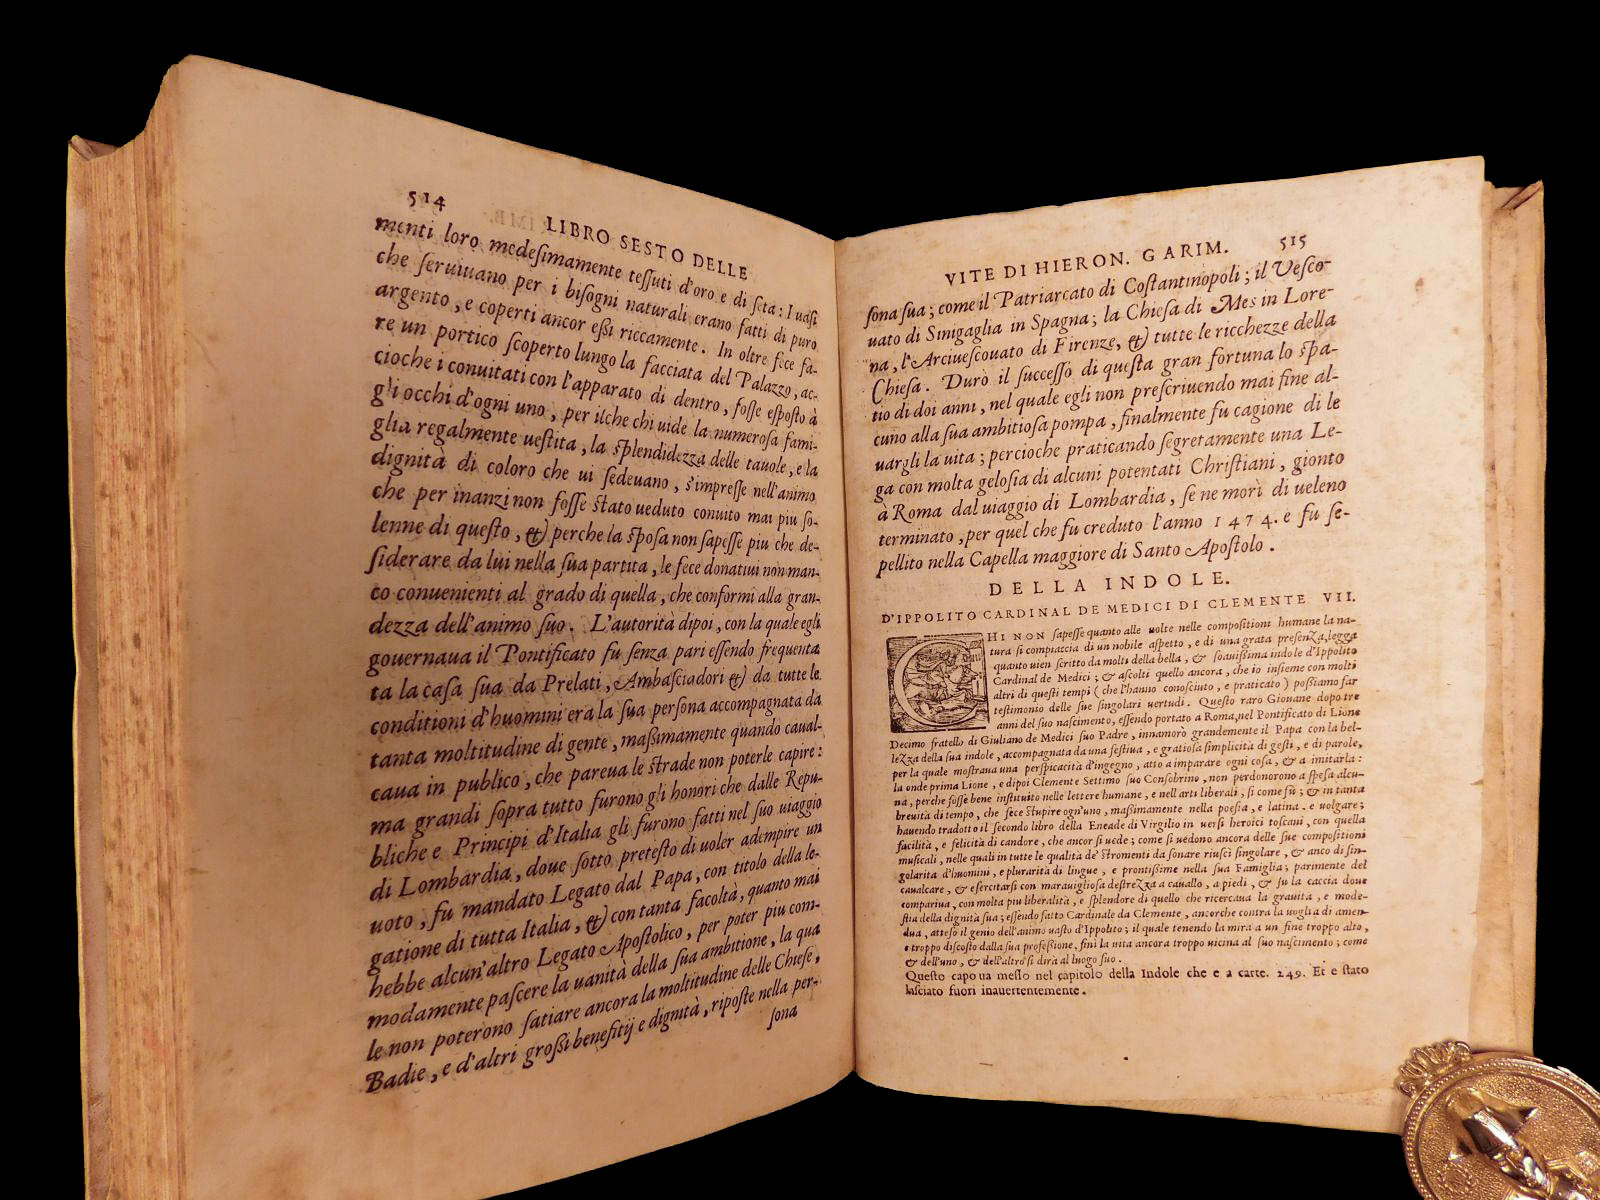 514
LIBRO SESTO DELLE
menti loro medeſimamente teſſuti d'oro e di ſeta: I uaſi
che ſeruiuano per i biſogni naturali erano fatti di puro
argento, e coperti ancor eßi riccamente. In oltre fece fa-
re un portico ſcoperto lungo la facciata del Palazzo, ac-
cioche i conuitati con l'apparato di dentro, foſſe eſpoſto à
gli occhi d'ogni uno, per ilche chi uide la numeroſa fami-
glia regalmente ueſtita, la ſplendidezza delle tauole, e la
dignità di coloro che ui ſedeuano, s'impreſſe nell'animo
che per inanzi non foſſe ſtato ueduto conuito mai piu ſo-
lenne di queſto, & perche la ſpoſa non ſapeſſe piu che de-
ſiderare da lui nella ſua partita, le fece donatiui non man-
co conuenienti al grado di quella, che conformi alla gran-
dezza dell'animo ſuo. L'autorità dipoi, con la quale egli
gouernaua il Pontificato fu ſenza pari eſſendo frequenta
ta la caſa ſua da Prelati, Ambaſciadori & da tutte le
conditioni d'huomini era la ſua perſona accompagnata da
tanta moltitudine di gente, maßimamente quando caual-
caua in publico, che pareua le ſtrade non poterle capire:
ma grandi ſopra tutto furono gli honori che dalle Repu-
bliche e Principi d'Italia gli furono fatti nel ſuo uiaggio
di Lombardia, doue ſotto preteſto di uoler adempire un
uoto, fu mandato Legato dal Papa, con titolo della le-
gatione di tutta Italia, & con tanta facoltà, quanto mai
hebbe alcun'altro Legato Apoſtolico, per poter piu com-
modamente paſcere la uanità della ſua ambitione, la qua
le non poterono ſatiare ancora la moltitudine delle Chieſe,
Badie, e d'altri großi benefitij e dignità, ripoſte nella per-
ſona
VITE DI HIERON. GARIM.
515
ſona ſua; come il Patriarcato di Coſtantinopoli; il Veſco-
uato di Sinigaglia in Spagna; la Chieſa di Mes in Lore-
na, l'Arciueſcouato di Firenze, & tutte le ricchezze della
Chieſa. Durò il ſucceſſo di queſta gran fortuna lo ſpa-
tio di doi anni, nel quale egli non preſcriuendo mai fine al-
cuno alla ſua ambitioſa pompa, finalmente fu cagione di le
uargli la uita; percioche praticando ſegretamente una Le-
ga con molta geloſia di alcuni potentati Chriſtiani, gionto
à Roma dal uiaggio di Lombardia, ſe ne morì di ueleno
terminato, per quel che fu creduto l'anno 1474. e fu ſe-
pellito nella Capella maggiore di Santo Apoſtolo.
DELLA INDOLE.
D'IPPOLITO CARDINAL DE MEDICI DI CLEMENTE VII.
CHI NON ſapeſſe quanto alle uolte nelle compoſitioni humane la na-
tura ſi compiaccia di un nobile aſpetto, e di una grata preſenza, legga
quanto uien ſcritto da molti della bella, & ſoauißima indole d'Ippolito
Cardinal de Medici; & aſcolti quello ancora, che io inſieme con molti
altri di queſti tempi (che l'hanno conoſciuto, e praticato) poßiamo far
teſtimonio delle ſue ſingolari uertudi. Queſto raro Giouane dopo tre
anni del ſuo naſcimento, eſſendo portato a Roma, nel Pontificato di Lione
Decimo fratello di Giuliano de Medici ſuo Padre, innamorò grandemente il Papa con la bel-
lezza della ſua indole, accompagnata da una feſtiua, e gratioſa ſimplicità di geſti, e di parole,
per la quale moſtraua una perſpicacità d'ingegno, atto a imparare ogni coſa, & a imitarla:
la onde prima Lione, e dipoi Clemente Settimo ſuo Conſobrino, non perdonorono a ſpeſa alcu-
na, perche foſſe bene inſtituito nelle lettere humane, e nell'arti liberali, ſi come fù; & in tanta
breuità di tempo, che fece ſtupire ogn'uno, maßimamente nella poeſia, e latina, e uolgare;
hauendo tradotto il ſecondo libro della Eneade di Virgilio in uerſi heroici toſcani, con quella
facilità, e felicità di candore, che ancor ſi uede; come ſi uedono ancora delle ſue compoſitioni
muſicali, nelle quali in tutte le qualità de' ſtromenti da ſonare riuſcì ſingolare, & anco di ſin-
golarità d'huomini, e pluralità di lingue, e prontißime nella ſua Famiglia; parimente del
caualcare, & eſercitarſi con marauiglioſa deſtrezza a cauallo, a piedi, & ſu la caccia doue
compariua, con molta piu liberalità, e ſplendore di quello che ricercaua la grauità, e mode-
ſtia della dignità ſua; eſſendo fatto Cardinale da Clemente, ancorche contra la uoglia di amen-
dua, atteſo il genio dell'animo uaſto d'Ippolito; il quale tenendo la mira a un fine troppo alto,
e troppo diſcoſto dalla ſua profeßione, finì la uita ancora troppo uicina al ſuo naſcimento; come
& dell'uno, & dell'altro ſi dirà al luogo ſuo.
Queſto capo ua meſſo nel capitolo della Indole che e a carte. 249. Et e ſtato
laſciato fuori inauertentemente.